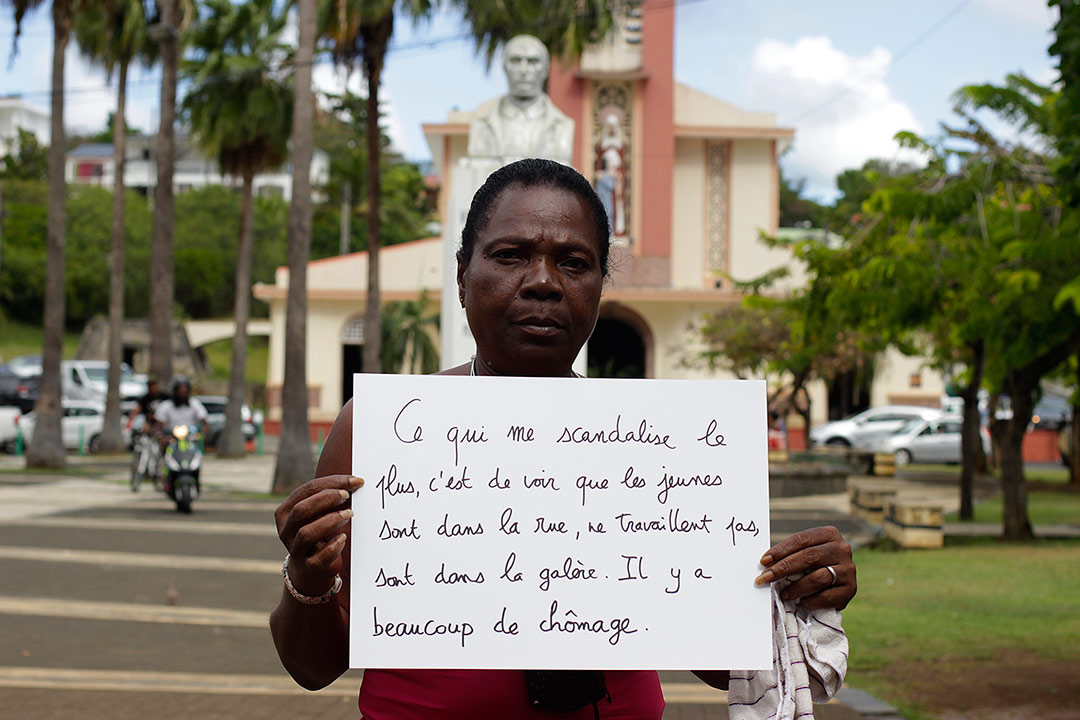 Ce qui me scandalise le
plus, c'est de voir que les jeunes
sont dans la rue, ne travaillent pas,
sont dans la galère. Il y a
beaucoup de chômage.